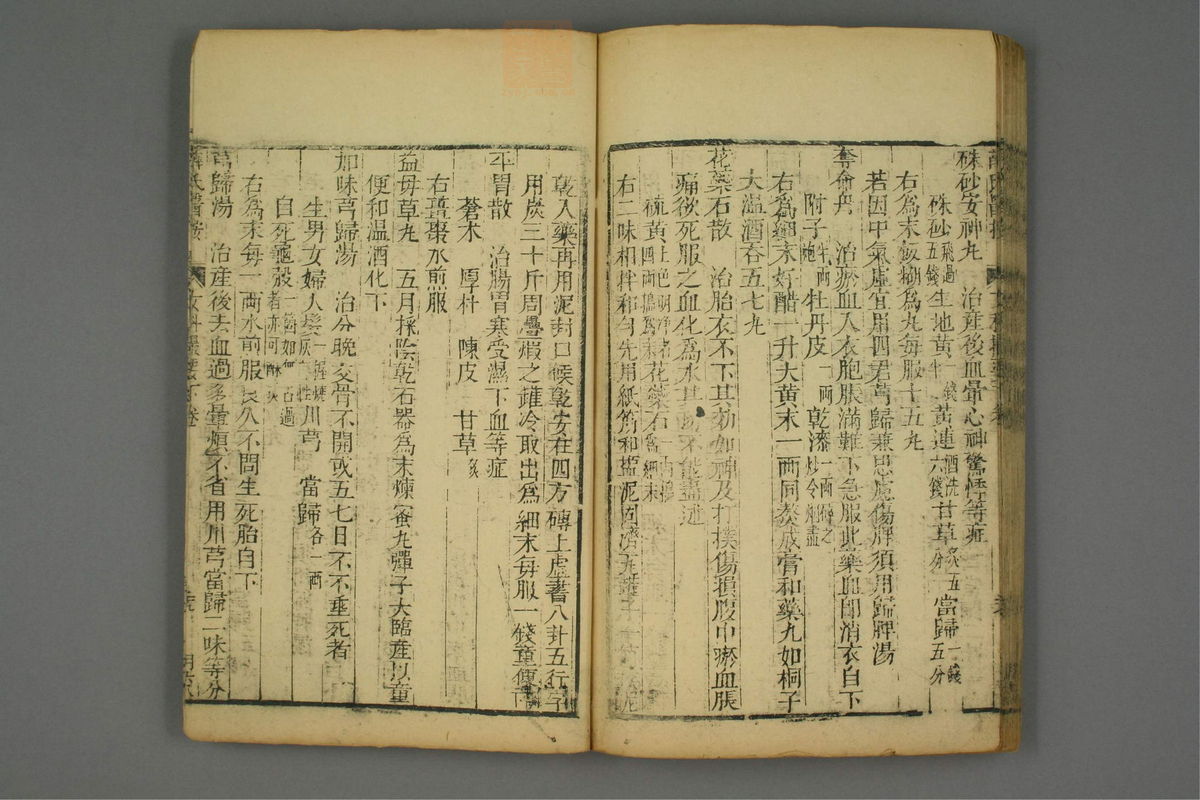 硃砂安神丸 治產後血暈心神驚悸等症
硃砂五錢飛過 生地黃 黃連酒洗六錢 甘草炙五分 當歸一錢五分
右爲末飯糊爲丸每服十五丸
若因中氣虛宜用四君芎歸兼思慮傷脾須用歸脾湯
奪命丹 治瘀血入衣胞脹滿難下急服此藥血卽消衣自下
附子半兩炮 牡丹皮一兩 乾漆一兩碎之炒令烟盡
右爲細末好醋一升大黃末一兩同熬成膏和藥丸如桐子
大溫酒吞五七丸
花蘂石散 治胎衣不下其効如神及打撲傷損腹中瘀血脹
痛欲死服之血化爲水其 不能盡述
硫黃上色明淨者四兩搗爲末 花蘂石一兩搗爲細末
右二味相拌和勻先用紙筋和鹽泥固濟瓦罐子一
乾入藥再用泥封口候乾安在四方磚上虛書八卦五行字
用炭三十斤周疊煅之錐冷取出爲細末每服一錢童便下
平胃散 治腸胃寒受濕下血等症
蒼朮 厚朴 陳皮 甘草炙
右薑棗水煎服
益母草丸 五月採陰乾石器爲末煉蜜丸彈子大臨產以童
便和溫酒化下
加味芎歸湯 治分娩交骨不開或五七日不下垂死者
生男女婦人髮一 川芎 當歸各一兩
自死龜殼一箇如無占過者亦可酥炙
右爲末每一兩水煎服良久不問生死胎自下
芎歸湯 治產後去血過多暈煩不省用川芎當歸二味等分